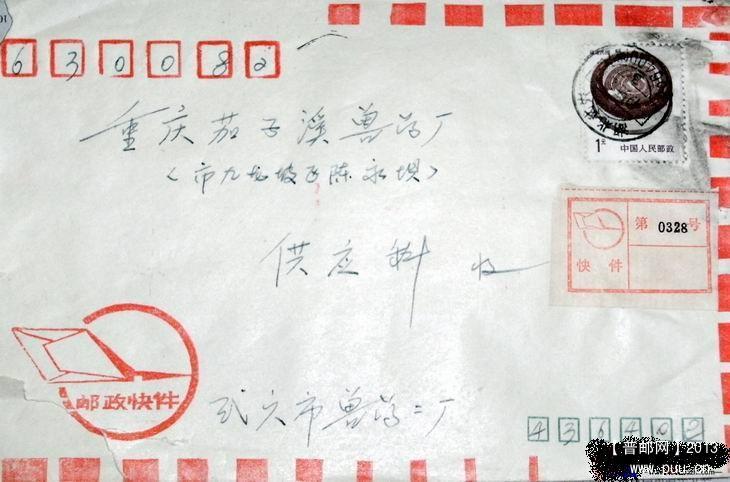 630082
1元 中国人民邮政
重庆茄子溪兽药厂
〈市九龙坡区陈家坝〉
第 0328 号
快件
供应科 收
邮政快件
武穴市兽药二厂
436402
【普邮网】2013
www.puu.cn